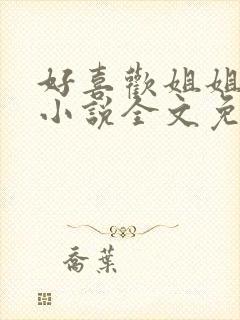 好喜歡姐姐
小說全文免
喬葉